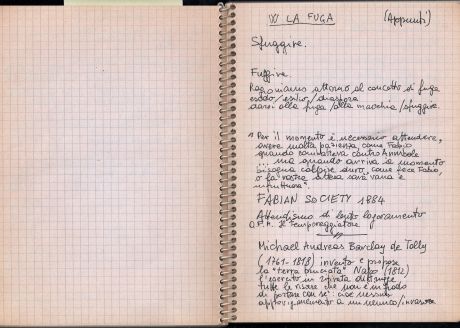 W LA FUGA (Appunti)
Sfuggire.
Fuggire.
Ragioniamo attorno al concetto di fuga
esodo/esilio/diaspora
darsi alla fuga/alla macchia/sfuggire.
"Per il momento è necessario attendere,
avere molta pazienza, come Fabio
quando combatteva contro Annibale
... ma quando arriva il momento
bisogna colpire duro, come fece Fabio,
o la vostra attesa sarà vana e
infruttuosa".
FABIAN SOCIETY 1884
Attendismo di lento logoramento
Q.F.M. Il Temporeggiatore
Michael Andreas Barclay de Tolly
(1761-1818) inventò e propose
la "terra bruciata" Napo (1812)
l'esercito in ritirata distrugge
tutte le risorse che non è in grado
di portare con sé: cioè nessun
approvvigionamento a un nemico/invasore